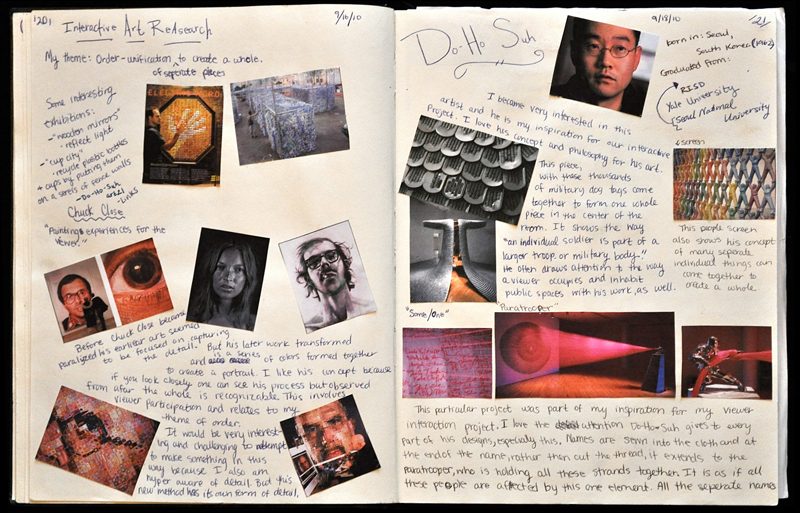 120)
9/10/10
Interactive Art Re Asearch
My theme: Order-unification to create a whole.
of separate pieces
Some interesting
exhibitions:
- "wooden mirrors"
• reflect light
- "cup city"
• recycle plastic bottles
+ caps by putting them
on a series of fence walls
- Do-Ho-Suh
• Links
Chuck Close
"Paintings experiences for the
viewer."
Before Chuck Close became
paralyzed his earlier art seemed
to be focused on capturing
the detail. But his later work transformed
and is a series of colors formed together
to create a portrait. I like his concept because
if you look closely one can see his process but observed
from afar the whole is recognizable. This involves
viewer participation and relates to my
theme of order.
It would be very interest-
ing and challenging to attempt
to make something in this
way because I also am
hyper aware of detail. But this
new method has its own form of detail.
9/13/10
121
Do-Ho Suh
born in: Seoul,
South Korea (1962)
Graduated from:
RISD
Yale University
Seoul National
University
I became very interested in this
artist and he is my inspiration for our interactive
Project. I love his concept and philosophy for his art.
This piece,
with these thousands
of military dog tags come
together to form one whole
piece in the center of the
room. It shows the way
"an individual soldier is part of a
larger troop or military body."
He often draws attention to the way
a viewer occupies and inhabit
public spaces with his work, as well.
screen
This people screen
also shows his concept
of many separate
individual things can
come together to
create a whole.
"Some/One"
"Paratrooper"
This particular project was part of my inspiration for my viewer
interaction project. I love the attention Do-Ho-Suh gives to every
part of his designs, especially this. Names are sewn into the cloth and at
the end of the name, rather than cut the thread, it extends to the
paratrooper, who is holding all these strands together. It is as if all
these people are affected by this one element. All the seperate names